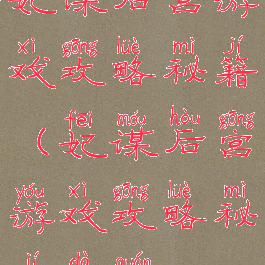 妃谋后宫游
xì gōng lüè mì jí
戏攻略秘籍
fēi móu hòu gōng
(妃谋后宫
yóu xì gōng lüè mì
游戏攻略秘